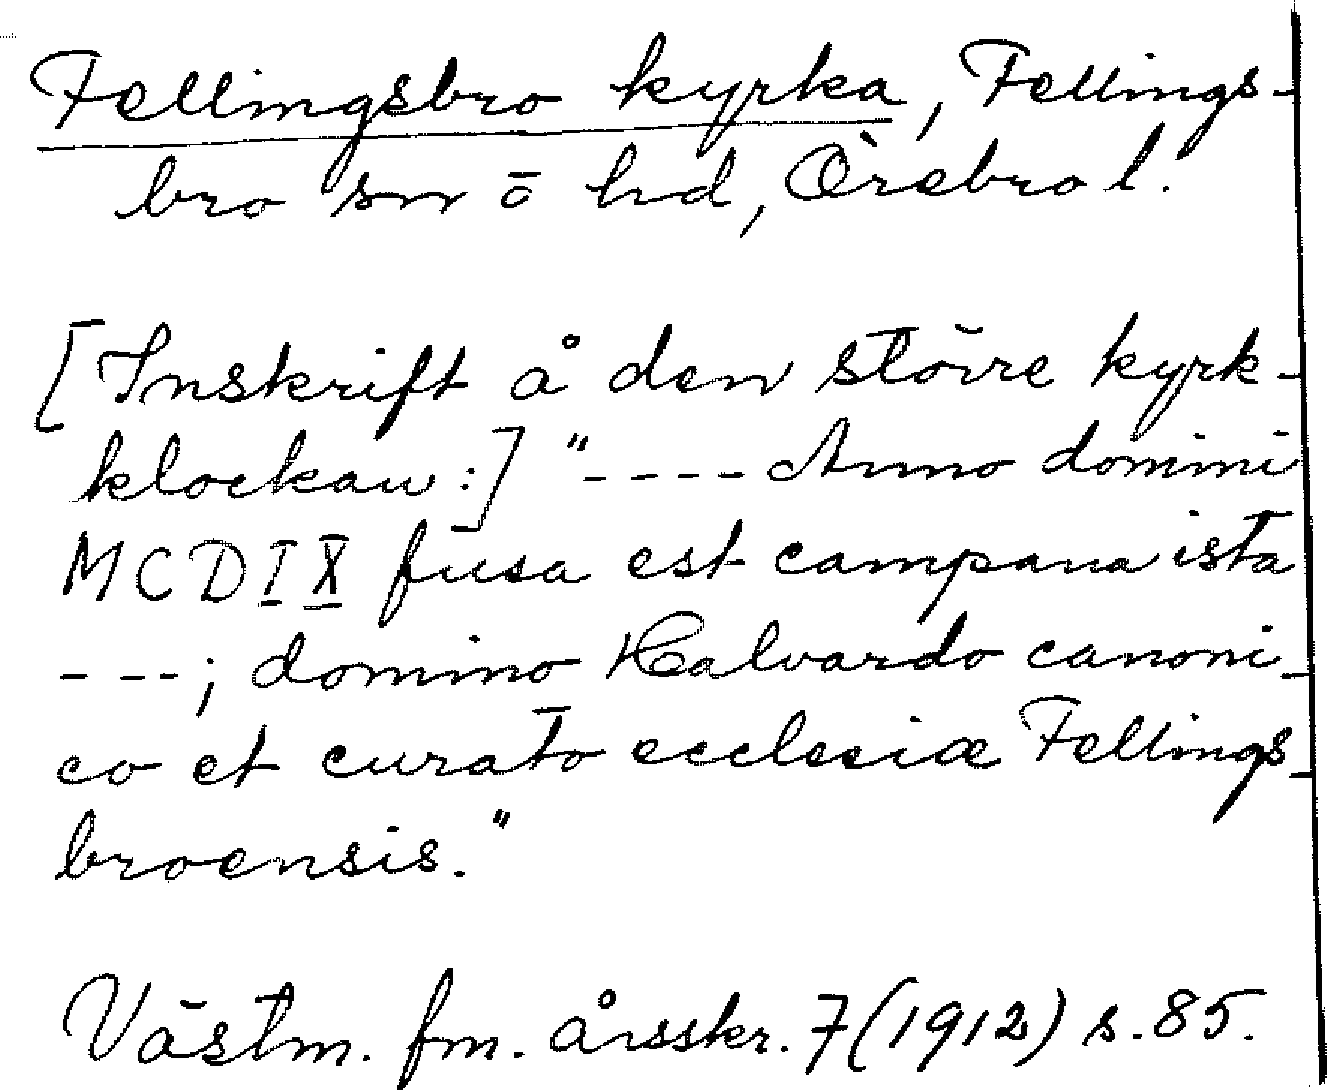 Fellingsbro kyrka, Fellings-
bro sn ō hd, Örebro l.
[Inskrift å den större kyrk-
klockan:] "---- Anno domini
MCDIX fusa est campana ista
---; domino Halvardo canoni-
co et curato ecclesiæ Fellings-
broensis."
Västm. fm. årsskr. 7 (1912) s. 85.